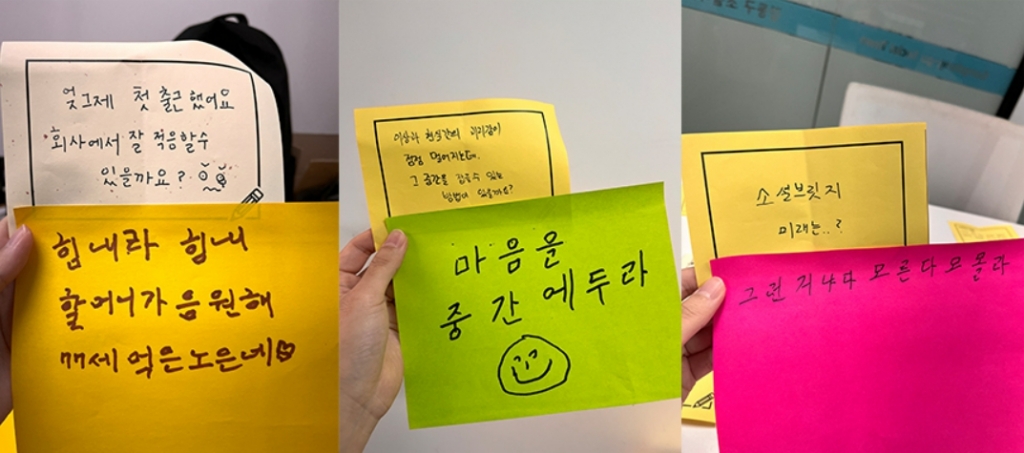 엊그제 첫 출근했어요
회사에서 잘 적응할수
있을까요?
힘내라 힘내
할머니가 응원해
77세 먹은노은네♡
이상과 현실간의 괴리감이
점점 멀어지는데.
그 중간을 잡을수 있는
방법이 있을까요?
마음을
중간에두라
소셜브릿지
미래는..?
모른다 모 몰라